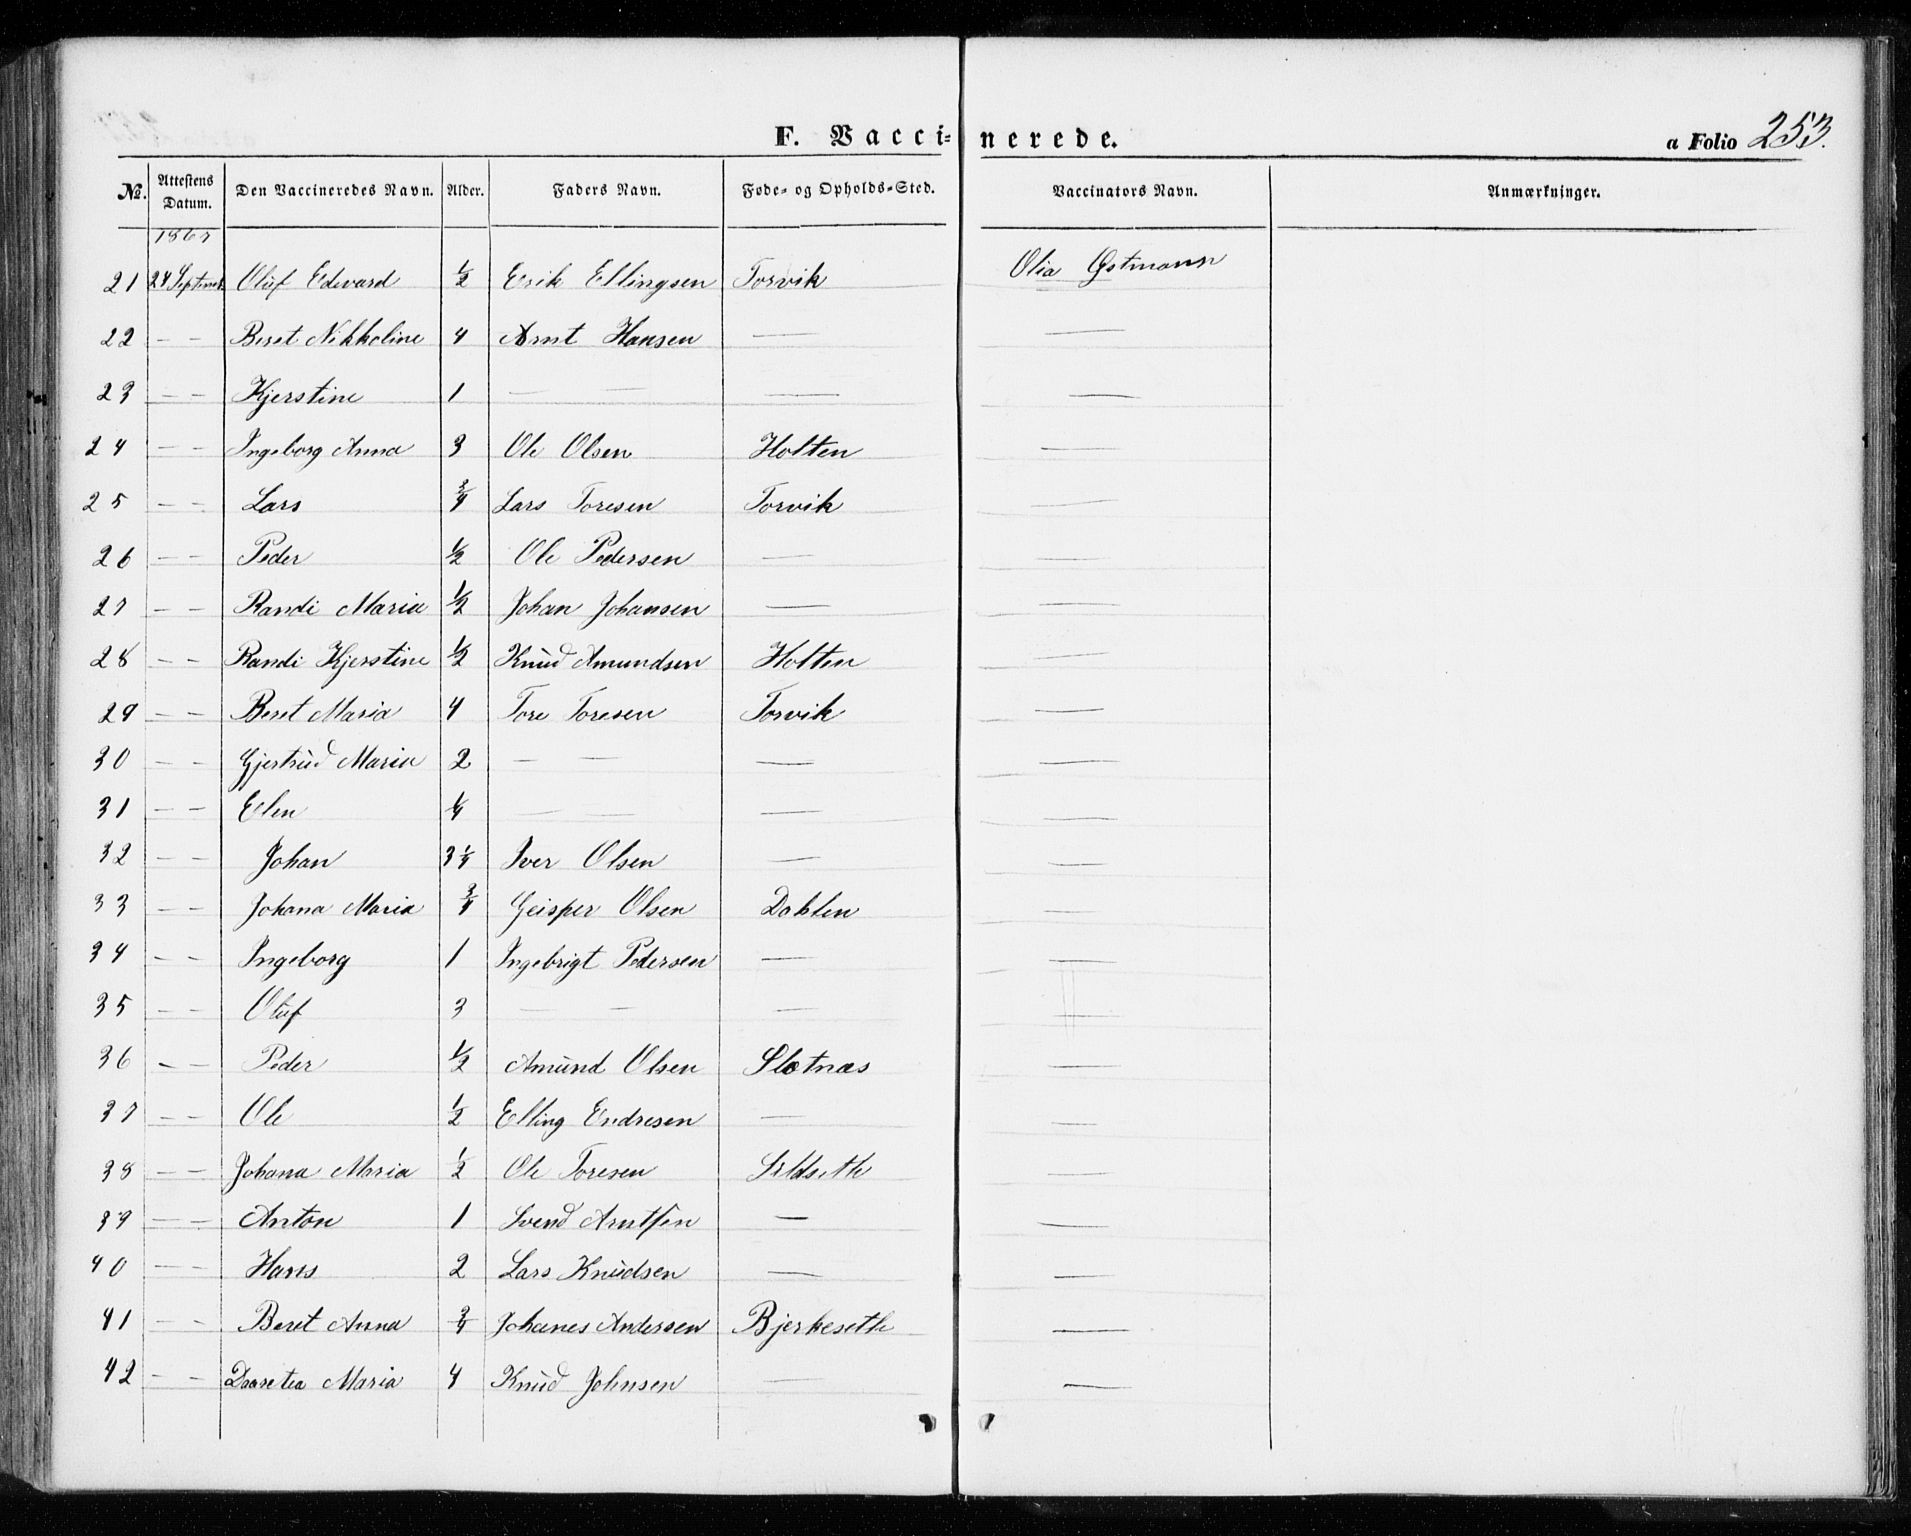 F. Vaccinerede.
a Folio 253.
№. Attestens Datum. Den Vaccineredes Navn. Alder. Faders Navn. Føde- og Opholds-Sted. Vaccinators Navn. Anmærkninger.
1867
21 24 Septemb Oluf Edvard 1/2 Erik Ellingsen Torvik Olia Østmann
22 — — Beret Nikkoline 4 Arnt Hansen — —
23 — — Kjerstine 1 — — — —
24 — — Ingeborg Anna 3 Ole Olsen Holten —
25 — — Lars 3/4 Lars Toresen Torvik —
26 — — Peder 1/2 Ole Pedersen — —
27 — — Randi Maria 1/2 Johan Johansen — —
28 — — Randi Kjerstine 1/2 Knud Amundsen Holten —
29 — — Beret Maria 4 Tore Toresen Torvik —
30 — — Gjertrud Maria 2 — — — —
31 — — Elen 1/4 — — — —
32 — — Johan 3 1/4 Iver Olsen — —
33 — — Johana Maria 3/4 Geisper Olsen Dahlen —
34 — — Ingeborg 1 Ingebrigt Pedersen — —
35 — — Oluf 3 — — — —
36 — — Peder 1/2 Amund Olsen Slotnæs —
37 — — Ole 1/2 Elling Endresen — —
38 — — Johana Maria 1/2 Ole Toresen Sildseth —
39 — — Anton 1 Svend Arntsen — —
40 — — Hans 2 Lars Knudsen — —
41 Beret Anna 3/4 Johanes Andersen Bjerkeseth —
42 — — Daaretea Maria 4 Knud Johnsen — —